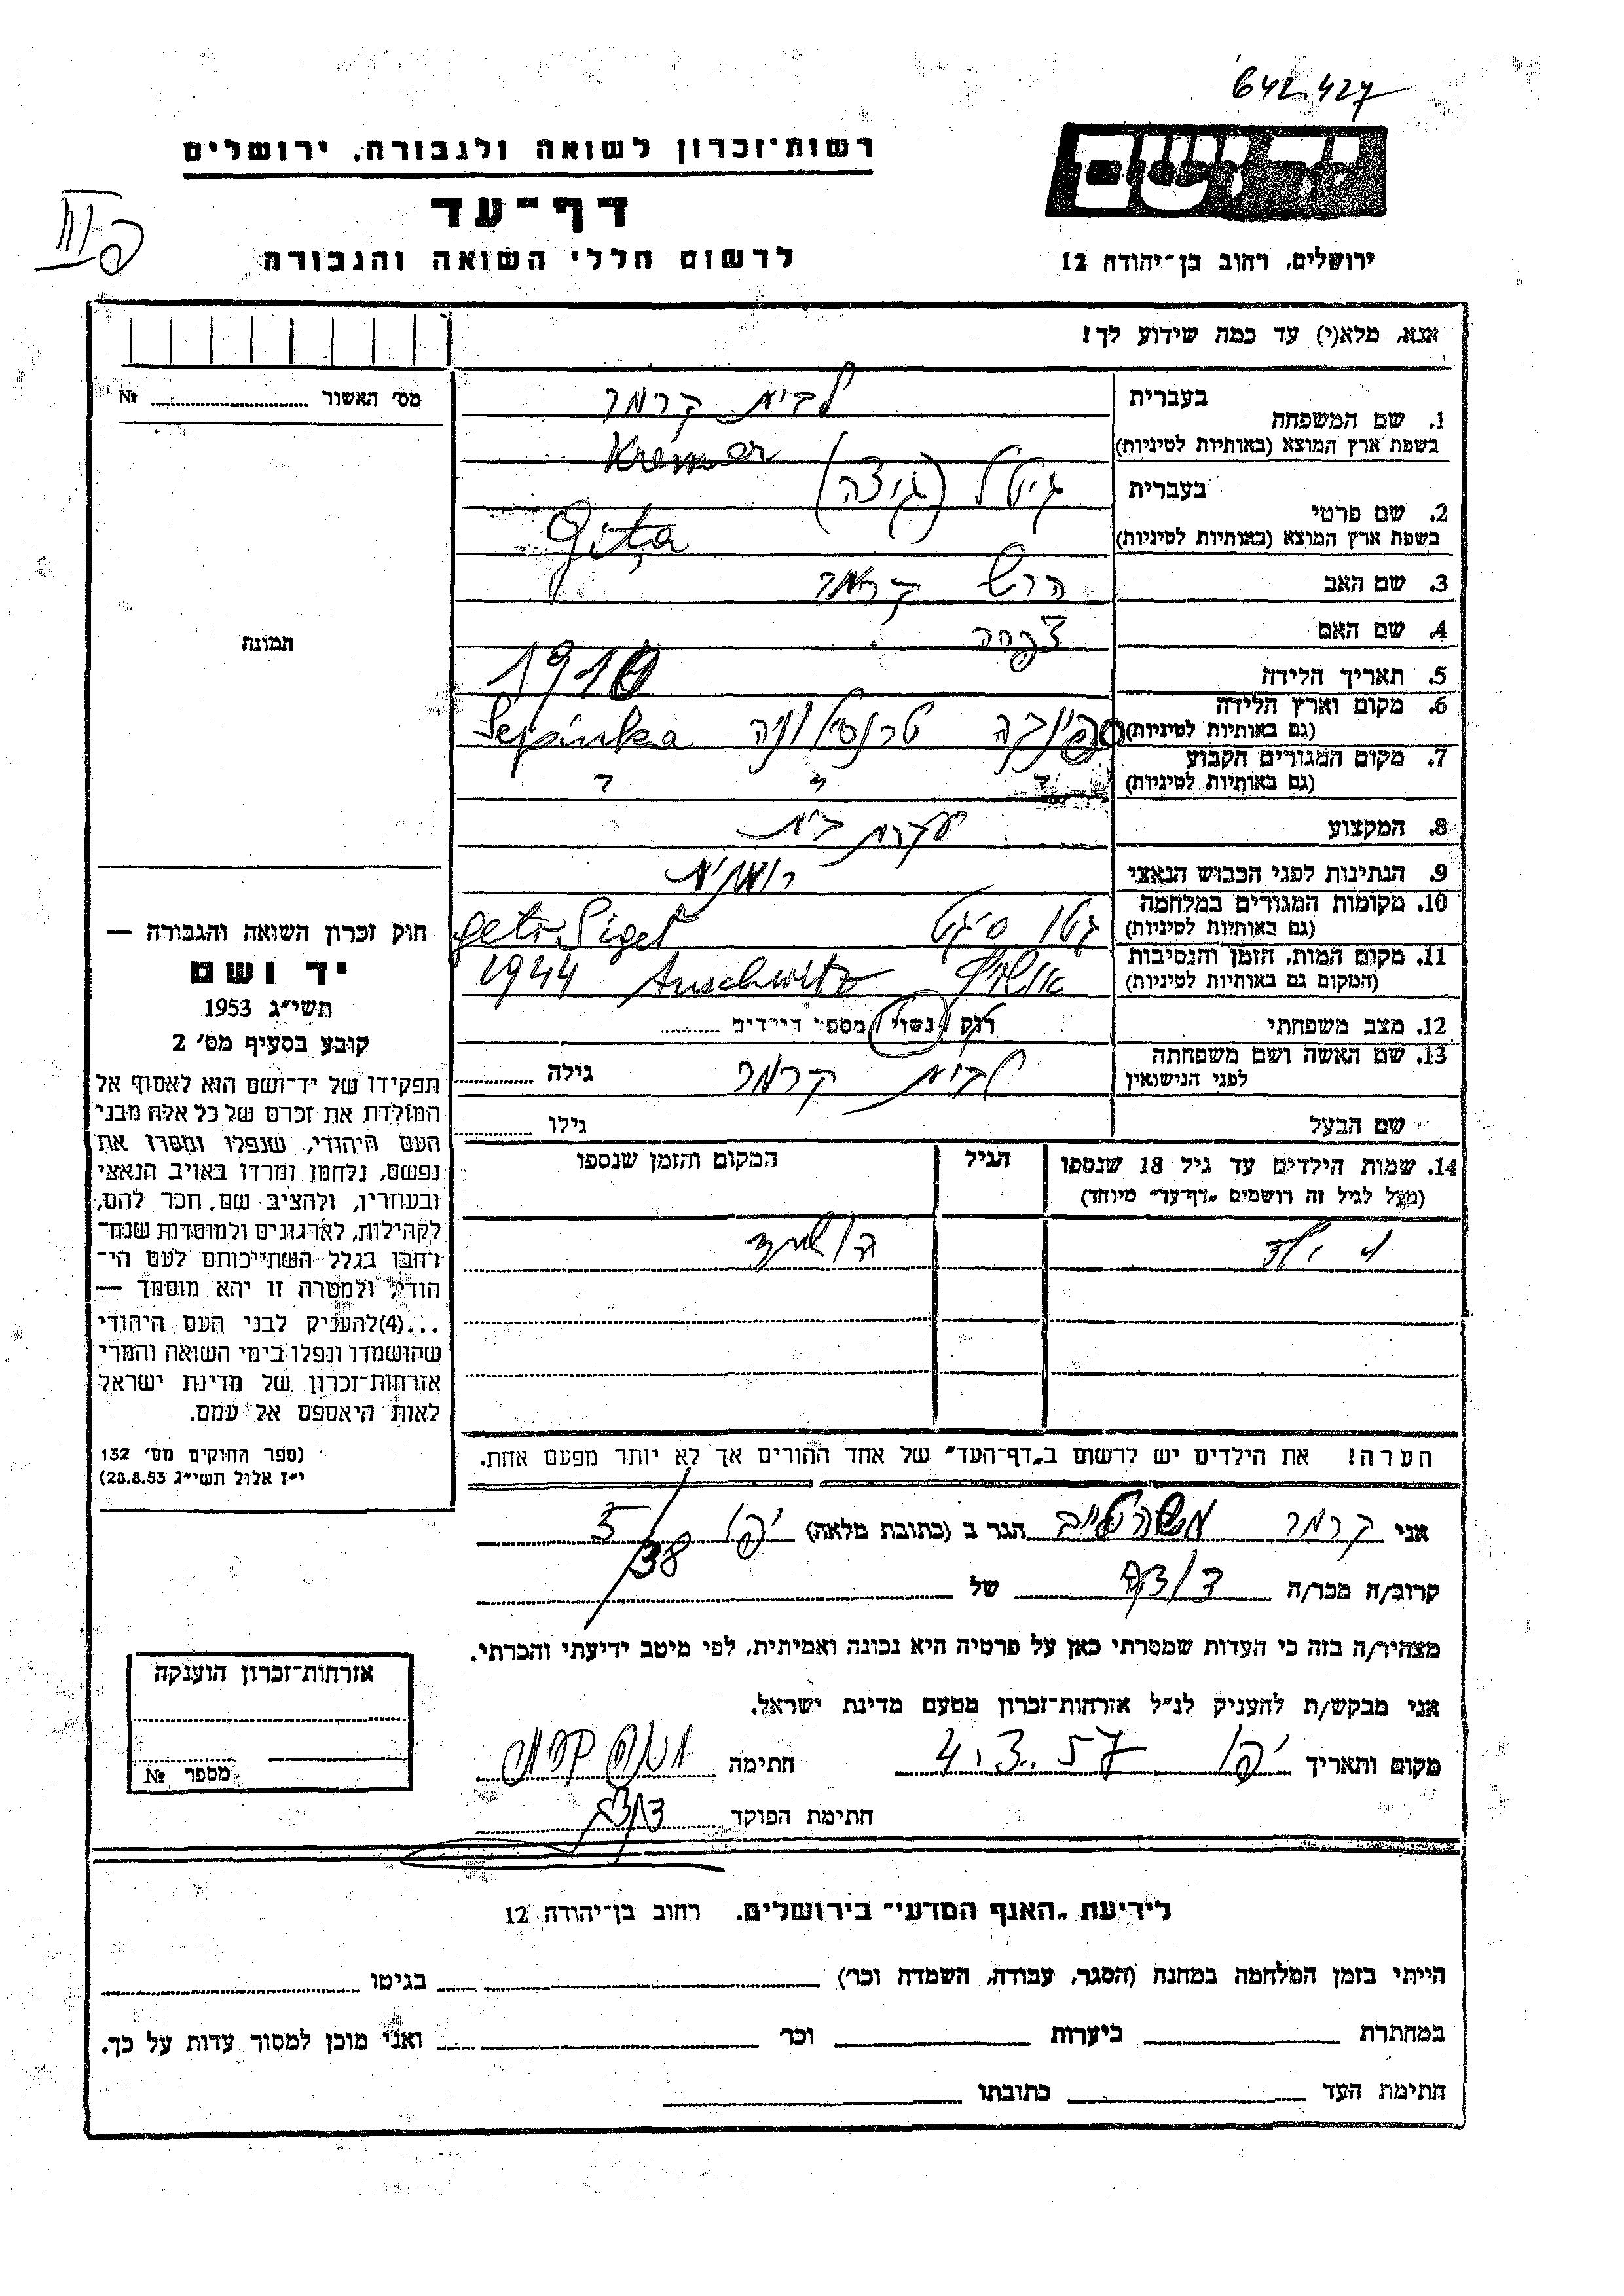 642.427
רשות־זכרון לשואה ולגבורה, ירושלים
יד ושם
דף־עד
לרשום חללי השואה והגבורה
ירושלים, רחוב בן־יהודה 12
אנא, מלא(י) עד כמה שידוע לך!
מס׳ האשור ........ №
תמונה
1. שם המשפחה בעברית לבית קרמר
בשפת ארץ המוצא (באותיות לטיניות) Kremer
2. שם פרטי בעברית גיטל (גיצה)
בשפת ארץ המוצא (באותיות לטיניות) Gița
3. שם האב הרש קרמר
4. שם האם
5. תאריך הלידה 1910
6. מקום וארץ הלידה (גם באותיות לטיניות) ספינקה טרנסילוניה Sepinka
7. מקום המגורים הקבוע (גם באותיות לטיניות) " " "
8. המקצוע עקרת בית
9. הנתינות לפני הכבוש הנאצי רומנית
10. מקומות המגורים במלחמה (גם באותיות לטיניות) גטו סיגט geto Siget
11. מקום המות, הזמן והנסיבות (המקום גם באותיות לטיניות) אושויץ Auschwitz 1944
12. מצב משפחתי רוק / נשוי / מספר הילדים ........
13. שם האשה ושם משפחתה לפני הנישואין לבית קרמר גילה ........
שם הבעל גילו ........
14. שמות הילדים עד גיל 18 שנספו הגיל המקום והזמן שנספו
(מעל לגיל זה רושמים „דף־עד״ מיוחד)
ילד
הערה! את הילדים יש לרשום ב„דף־העד״ של אחד ההורים אך לא יותר מפעם אחת.
חוק זכרון השואה והגבורה —
יד ושם
תשי״ג 1953
קובע בסעיף מס׳ 2
תפקידו של יד־ושם הוא לאסוף אל
המולדת את זכרם של כל אלה מבני
העם היהודי, שנפלו ומסרו את
נפשם, נלחמו ומרדו באויב הנאצי
ובעוזריו, ולהציב שם וזכר להם,
לקהילות, לארגונים ולמוסדות שנח־
רבו בגלל השתייכותם לעם הי־
הודי, ולמטרה זו יהא מוסמך —
...(4) להעניק לבני העם היהודי
שהושמדו ונפלו בימי השואה והמרי
אזרחות־זכרון של מדינת ישראל
לאות היאספם אל עמם.
(ספר החוקים מס׳ 132
י״ז אלול תשי״ג 28.8.53)
אני קרמר הגר ב (כתובת מלאה) יפו 38
קרוב/ה מכר/ה של
מצהיר/ה בזה כי העדות שמסרתי כאן על פרטיה היא נכונה ואמיתית, לפי מיטב ידיעתי והכרתי.
אני מבקש/ת להעניק לנ״ל אזרחות־זכרון מטעם מדינת ישראל.
מקום ותאריך יפו 4.3.57 חתימה
חתימת הפוקד
אזרחות־זכרון הוענקה
מספר №
לידיעת „האגף המדעי״ בירושלים. רחוב בן־יהודה 12
הייתי בזמן המלחמה במחנה (הסגר, עבודה, השמדה וכו׳) בגיטו
במחתרת ביערות וכו׳ ואני מוכן למסור עדות על כך.
חתימת העד כתובתו